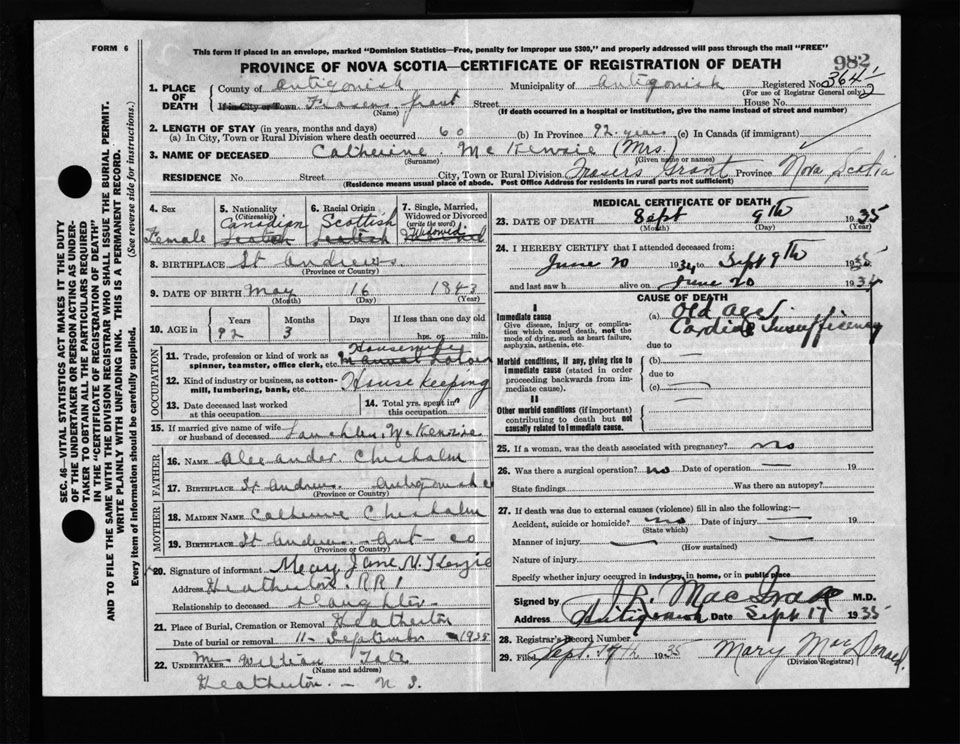 FORM 6
This form if placed in an envelope, marked "Dominion Statistics—Free, penalty for improper use $300," and properly addressed will pass through the mail "FREE"
982
PROVINCE OF NOVA SCOTIA—CERTIFICATE OF REGISTRATION OF DEATH
1. PLACE OF DEATH
County of Antigonish Municipality of Antigonish Registered No. 364 1/2
(For use of Registrar General only)
If in City or Town Frasers Grant Street House No.
(Name) (If death occurred in a hospital or institution, give the name instead of street and number)
2. LENGTH OF STAY (in years, months and days)
(a) In City, Town or Rural Division where death occurred 60 (b) In Province 92 years (c) In Canada (if immigrant)
3. NAME OF DECEASED Catherine McKenzie (Mrs.)
(Surname) (Given name or names)
RESIDENCE No. Street City, Town or Rural Division Frasers Grant Province Nova Scotia
(Residence means usual place of abode. Post Office Address for residents in rural parts not sufficient)
4. Sex
Female
5. Nationality (Citizenship)
Canadian
Scotch
6. Racial Origin
Scottish
Scotish
7. Single, Married, Widowed or Divorced (write the word)
Widowed
8. BIRTHPLACE St Andrews
(Province or Country)
9. DATE OF BIRTH May 16 1843
(Month) (Day) (Year)
10. AGE in Years Months Days If less than one day old
92 3 hrs. or min.
OCCUPATION
11. Trade, profession or kind of work as spinner, teamster, office clerk, etc. Housewife
Manual Labour
12. Kind of industry or business, as cotton-mill, lumbering, bank, etc. House keeping
13. Date deceased last worked at this occupation
14. Total yrs. spent in this occupation
15. If married give name of wife or husband of deceased Lauchlin McKenzie
FATHER
16. NAME Alexander Chisholm
17. BIRTHPLACE St Andrews Antigonish Co
(Province or Country)
MOTHER
18. MAIDEN NAME Catherine Chisholm
19. BIRTHPLACE St Andrews - Ant - Co
(Province or Country)
20. Signature of informant Mary Jane McKenzie
Address Heatherton RR 1
Relationship to deceased daughter
21. Place of Burial, Cremation or Removal Heatherton
Date of burial or removal 11 - September 1935
22. UNDERTAKER Mr William
(Name and address)
Heatherton - N S.
MEDICAL CERTIFICATE OF DEATH
23. DATE OF DEATH Sept 9th 1935
(Month) (Day) (Year)
24. I HEREBY CERTIFY that I attended deceased from:
June 20 1934 to Sept 9th 1935
and last saw h alive on June 20 1934
CAUSE OF DEATH
I
Immediate cause
Give disease, injury or complication which caused death, not the mode of dying, such as heart failure, asphyxia, asthenia, etc.
(a) Old age,
Cardiac Insufficiency
due to
Morbid conditions, if any, giving rise to immediate cause (stated in order proceeding backwards from immediate cause).
(b) —
due to
(c) —
II
Other morbid conditions (if important) contributing to death but not causally related to immediate cause.
25. If a woman, was the death associated with pregnancy? no
26. Was there a surgical operation? no Date of operation — 19
State findings Was there an autopsy?
27. If death was due to external causes (violence) fill in also the following:—
Accident, suicide or homicide? no Date of injury — 19
(State which)
Manner of injury —
(How sustained)
Nature of injury
Specify whether injury occurred in industry, in home, or in public place
Signed by MacIsaac M.D.
Address Antigonish Date Sept 17 1935
28. Registrar's Record Number
29. Filed Sept. 19th 1935 Mary MacDonald
(Division Registrar)
SEC. 46—VITAL STATISTICS ACT MAKES IT THE DUTY
OF THE UNDERTAKER OR PERSON ACTING AS UNDERTAKER TO OBTAIN ALL THE PARTICULARS REQUIRED
IN THE "CERTIFICATE OF REGISTRATION OF DEATH"
AND TO FILE THE SAME WITH THE DIVISION REGISTRAR WHO SHALL ISSUE THE BURIAL PERMIT.
WRITE PLAINLY WITH UNFADING INK. THIS IS A PERMANENT RECORD.
Every item of information should be carefully supplied. (See reverse side for instructions.)